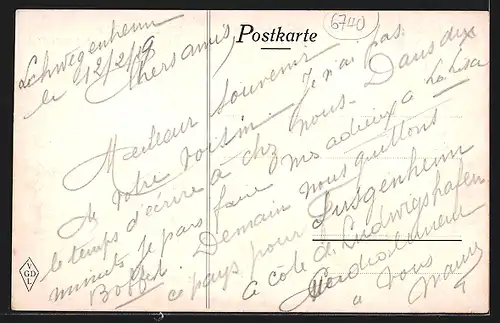 Postkarte
6740
Schwegenheim
le 12/2/19
Chers amis,
Meilleur souvenir
de votre voisin. Je n'ai pas
le temps d'écrire à chez nous. Dans dix
minutes je pars faire mes adieux à La Lisa
Demain nous quittons
ce pays pour Fusgenheim
à côté de Ludwigshafen
Cordialement
à vous
V
GD
L